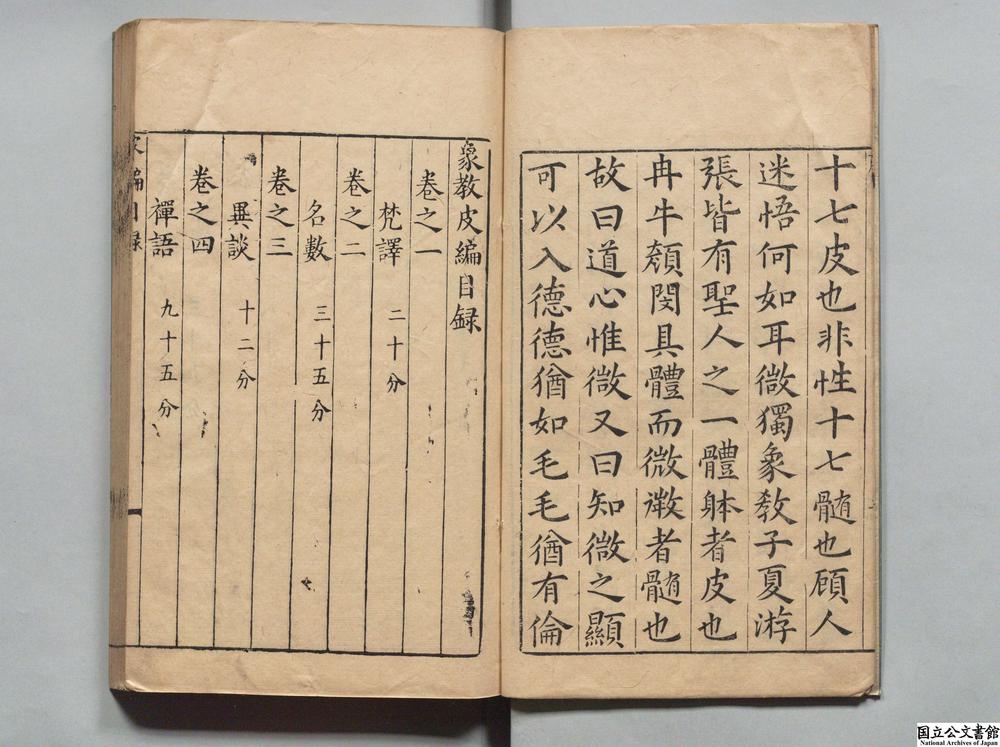 十七皮也非性十七髄也顧人
迷悟何如耳微獨象教子夏游
張皆有聖人之一體躰者皮也
冉牛顏閔具體而微微者髄也
故曰道心惟微又曰知微之顯
可以入德德猶如毛毛猶有倫
象教皮編目録
卷之一
梵譯 二十分
卷之二
名數 三十五分
卷之三
異談 十二分
卷之四
禪語 九十五分
編目録
国立公文書館
National Archives of Japan